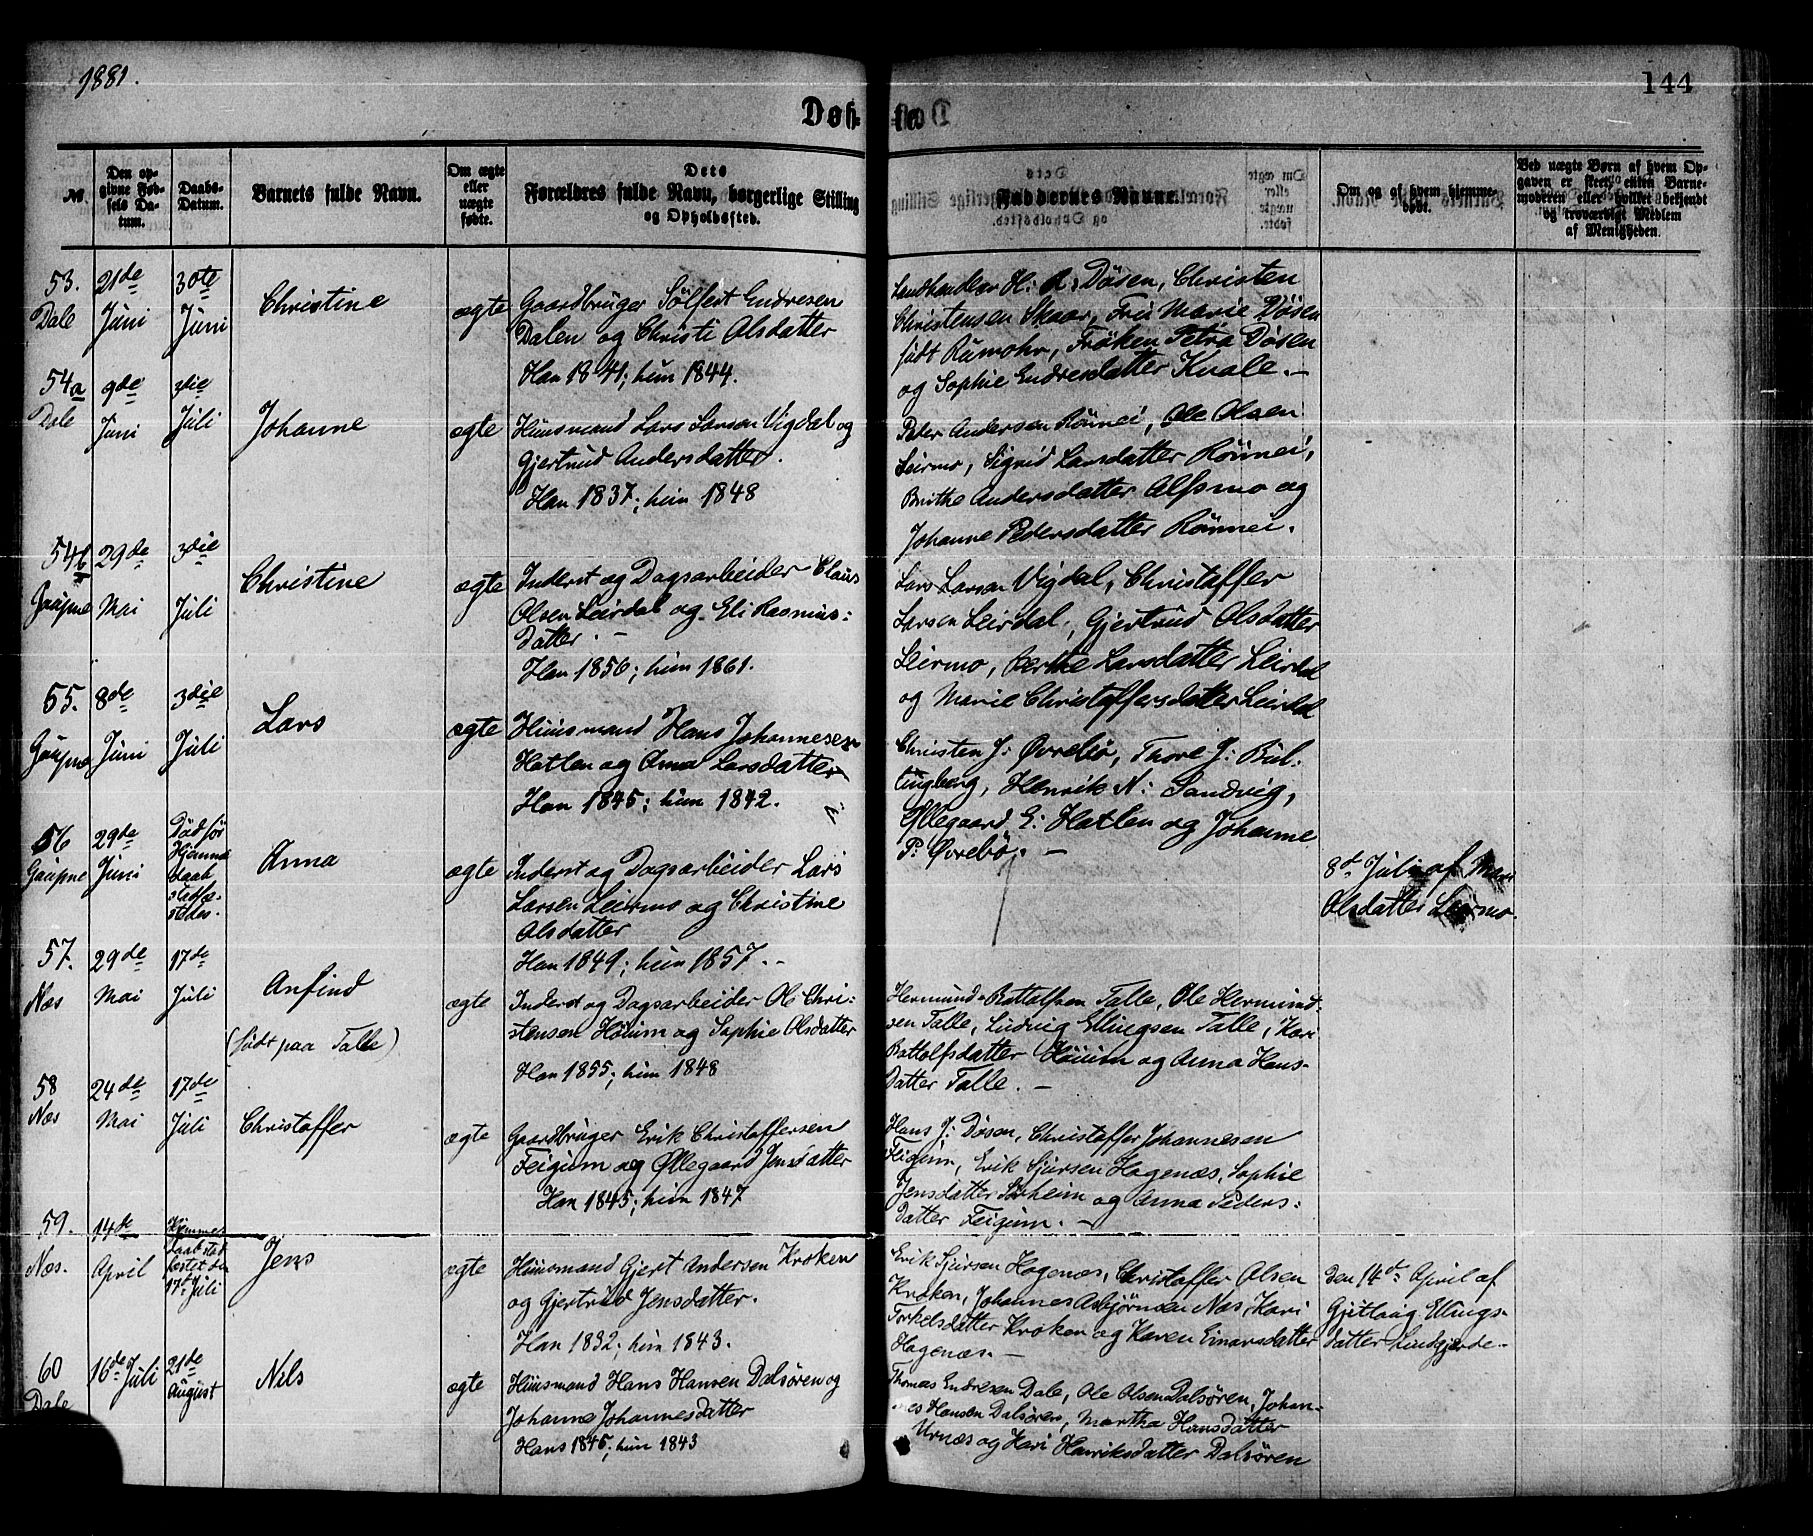 1881.
144
Døbte
№.
Den opgivne Fødsels Datum.
Daabs-Datum.
Barnets fulde Navn.
Om ægte eller uægte fødte.
Dets Forældres fulde Navn, borgerlige Stilling og Opholdssted.
Faddernes Navne.
Om og af hvem hjemmedøbt.
Ved uægte Børn af hvem Opgaven er skeet, enten Barnemoderen eller hvilket bekjendt og troværdigt Medlem af Menigheden.
53. Dale
21de Juni
30te Juni
Christine
ægte
Gaardbruger Sølfest Endresen
Dalen og Christi Olsdatter
Han 1841; hun 1844.
Landhandler H. R. Døsen, Christen
Christensen Skaar, Fru Marie Døsen
født Rumohr, Frøken Petra Døsen
og Sophie Endresdatter Kvale. –
54a Dale
9de Juni
3die Juli
Johanne
ægte
Huusmand Lars Larsen Vigdal og
Gjertrud Andersdatter.
Han 1837; hun 1848
Peder Andersen Rönnei, Ole Olsen
Leirmo, Sigrid Larsdatter Rönnei,
Brithe Andersdatter Alfsmo og
Johanne Pedersdatter Rönnei.
54b Gaupne
29de Mai
3die Juli
Christine
ægte
Inderst og Dagsarbeider Claus
Olsen Leirdal og Eli Rasmus:
Datter. –
Han 1856; hun 1861.
Lars Larsen Vigdal, Christaffer
Larsen Leirdal, Gjertrud Olsdatter
Leirmo, Berthe Larsdatter Leirdal
og Marie Christaffersdatter Leirdal
55. Gaupne
8de Juni
3die Juli
Lars
ægte
Huusmand Hans Johannesen
Hatlen og Anna Larsdatter
Han 1845; hun 1842.
Christen J: Øvrebø, Thore J: Bul-
tingberg, Henrik N: Sandvig,
Øllegaard E: Hatlen og Johanne
P: Øvrebø. –
56 Gaupne
29de Juni
Død før
Hjemme
daab
stadfæ-
stedes.
Anna
ægte
Inderst og Dagsarbeider Lars
Larsen Leirmo og Christine
Olsdatter
Han 1849; hun 1857. –
8d Juli af Mari
Olsdatter Leirmo.
57. Næs
29de Mai
17de Juli
Anfind
(født paa Talle)
ægte
Inderst og Dagsarbeider Ole Chri:
stensen Høium og Sophie Olsdatter
Han 1855; hun 1848
Hermund Bottolfsen Talle, Ole Hermund-
sen Talle, Ludvig Ellingsen Talle, Kari
Bottolfsdatter Høium og Anna Hans-
datter Talle. –
58 Næs
24de Mai
17de Juli
Christaffer
ægte
Gaardbruger Erik Christaffersen
Feigum og Øllegaard Jensdatter
Han 1845; hun 1847
Hans J: Døsen, Christaffer Johannesen
Feigum, Erik Sjursen Hagenæs, Sophie
Jensdatter Sørheim og Anna Peders:
datter Feigum. –
59. Næs.
14de April
Hjemme
daab stad
fæstet den
17de Juli
Jens
ægte
Huusmand Gjert Andersen Kroken
og Gjertrud Jensdatter.
Han 1832; hun 1843.
Erik Sjursen Hagenæs, Christaffer Olsen
Kroken, Johannes Asbjørnsen Næs, Kari
Torkelsdatter Kroken og Karen Einarsdatter
Hagenæs. –
Den 14de April af
Gjetlaug Ellings-
datter Lindgjerde. –
60 Dale
16de Juli
21de August
Nils
ægte
Huusmand Hans Hansen Dalsøren og
Johanne Johannesdatter
Hans 1845; hun 1843
Thomas Endresen Dale, Ole Olsen Dalsøren, Johan-
nes Hansen Dalsøren, Martha Hansdatter
Urnæs og Kari Henriksdatter Dalsøren